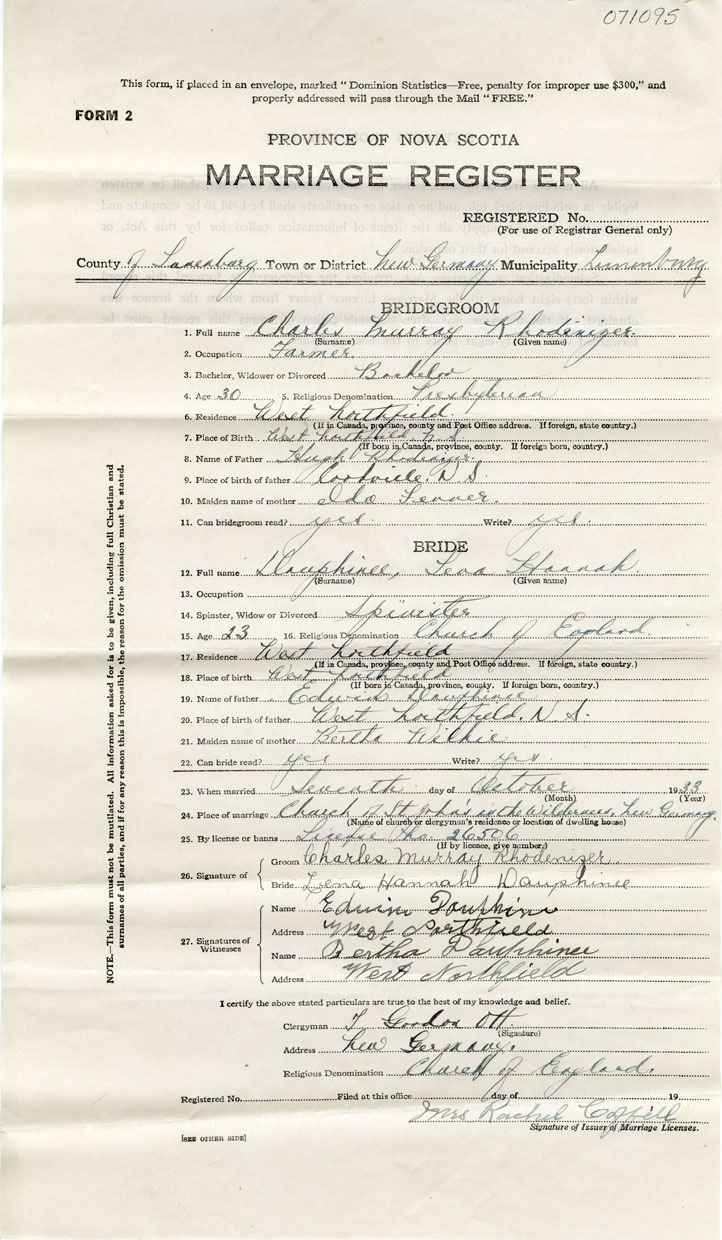 071095
This form, if placed in an envelope, marked “Dominion Statistics—Free, penalty for improper use $300,” and
properly addressed will pass through the Mail “FREE.”
FORM 2
PROVINCE OF NOVA SCOTIA
MARRIAGE REGISTER
REGISTERED No.
(For use of Registrar General only)
County of Lunenburg Town or District New Germany Municipality Lunenburg
BRIDEGROOM
1. Full name Charles Murray Rhodenizer
(Surname) (Given name)
2. Occupation Farmer
3. Bachelor, Widower or Divorced Bachelor
4. Age 30 5. Religious Denomination Presbyterian
6. Residence West Northfield
(If in Canada, province, county and Post Office address. If foreign, state country.)
7. Place of Birth West Northfield N S
(If born in Canada, province, county. If foreign born, country.)
8. Name of Father Hugh Rhodenizer
9. Place of birth of father Cookville. N S.
10. Maiden name of mother Ida Feener.
11. Can bridegroom read? yes. Write? yes.
BRIDE
12. Full name Dauphinee, Lena Hannah.
(Surname) (Given name)
13. Occupation
14. Spinster, Widow or Divorced Spinster
15. Age 23 16. Religious Denomination Church of England.
17. Residence West Northfield
(If in Canada, province, county and Post Office address. If foreign, state country.)
18. Place of birth West Northfield
(If born in Canada, province, county. If foreign born, country.)
19. Name of father Edwin Dauphinee
20. Place of birth of father West Northfield. N S.
21. Maiden name of mother Bertha Welkie
22. Can bride read? yes Write? yes
23. When married Seventh day of October 1933
(Month) (Year)
24. Place of marriage Church of St John's in the Wilderness, New Germany.
(Name of church or clergyman's residence or location of dwelling house)
25. By license or banns License No. 26506
(If by licence, give number)
26. Signature of
Groom Charles Murray Rhodenizer.
Bride Lena Hannah Dauphinee
27. Signatures of
Witnesses
Name Edwin Dauphine
Address West Northfield
Name Bertha Dauphinee
Address West Northfield
I certify the above stated particulars are true to the best of my knowledge and belief.
Clergyman T Gordon Ott
(Signature)
Address New Germany.
Religious Denomination Church of England.
Registered No. Filed at this office day of 19
Mrs Rachel
Signature of Issuer of Marriage Licenses.
[SEE OTHER SIDE]
NOTE.—This form must not be mutilated. All information asked for is to be given, including full Christian and
surnames of all parties, and if for any reason this is impossible, the reason for the omission must be stated.